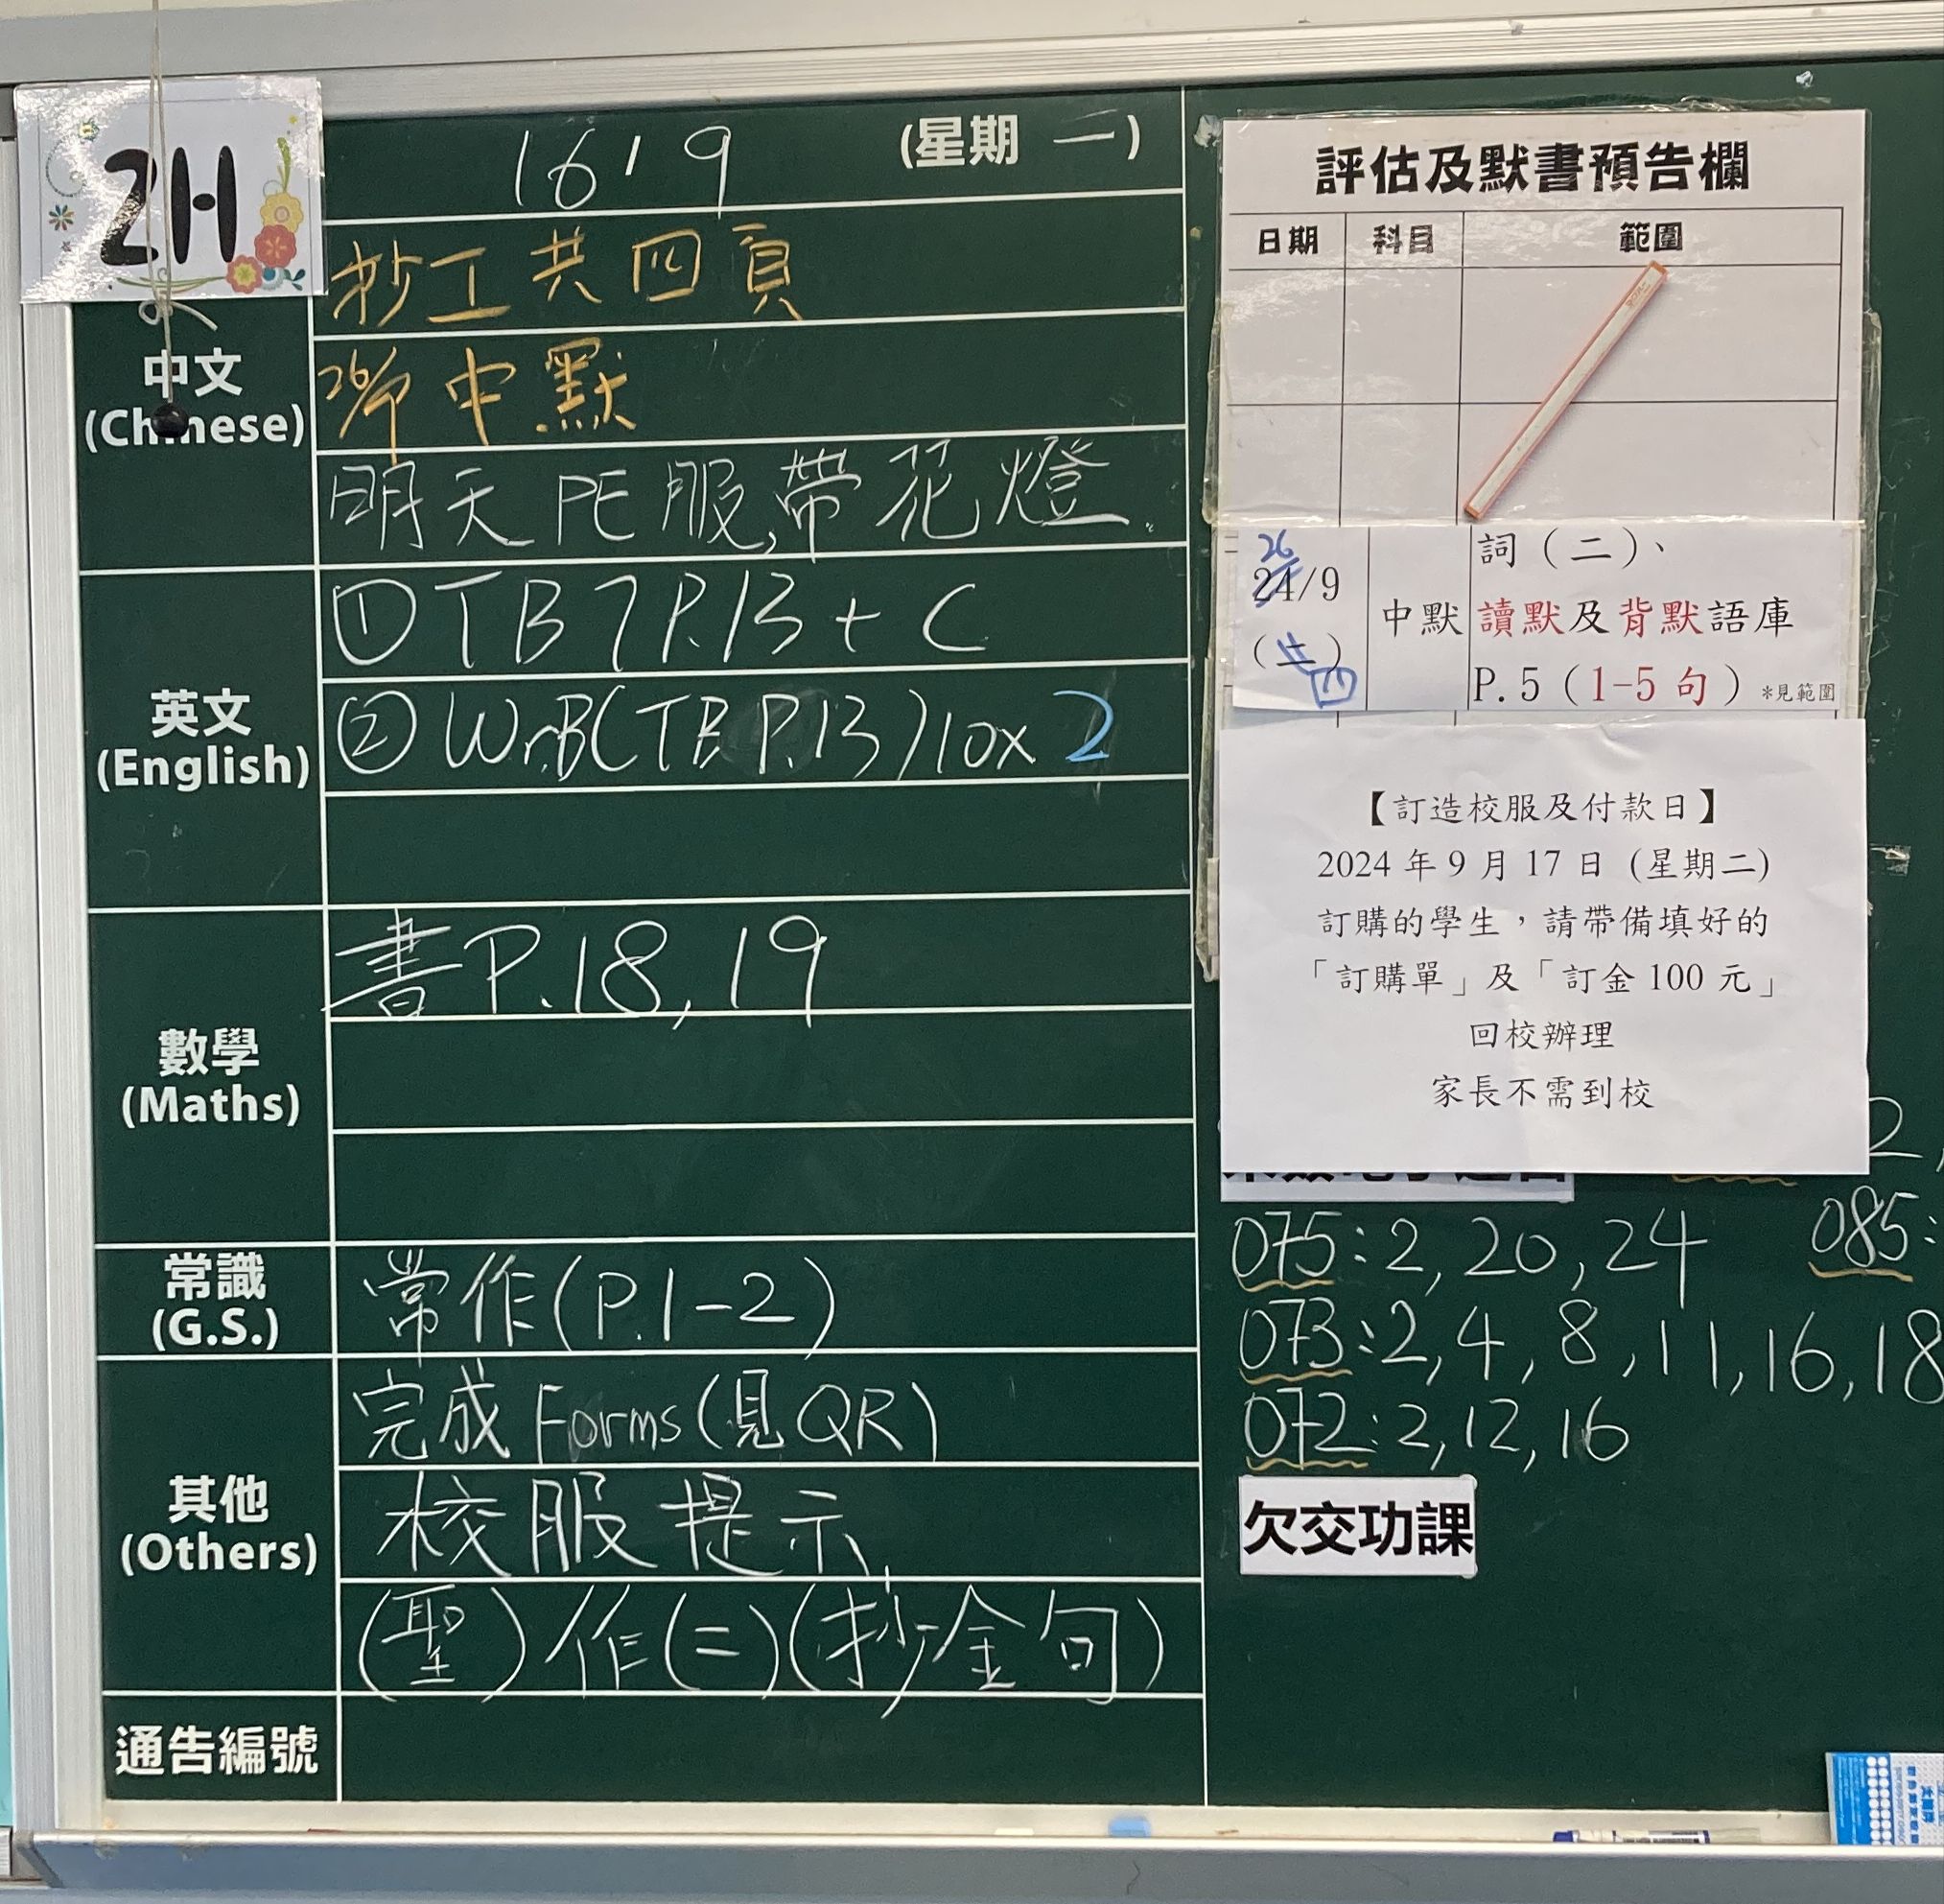 2H
16/9 (星期 一)
抄工共四頁
中文
(Chinese)
26/9 中默
明天PE服,帶花燈.
英文
(English)
① TB7 P.13 + C
② Wr.B(TB P.13)10x 2
數學
(Maths)
書P.18,19
常識
(G.S.)
常作(P.1-2)
其他
(Others)
完成 Forms(見QR)
校服提示
(聖)作(二)(抄金句)
通告編號
評估及默書預告欄
日期 科目 範圍
26
24/9
(二)
四
中默
詞(二)、
讀默及背默語庫
P.5(1-5 句)*見範圍
【訂造校服及付款日】
2024 年 9 月 17 日 (星期二)
訂購的學生，請帶備填好的
「訂購單」及「訂金 100 元」
回校辦理
家長不需到校
075:2, 20, 24 085:
073:2, 4, 8, 11, 16, 18
072:2, 12, 16
欠交功課